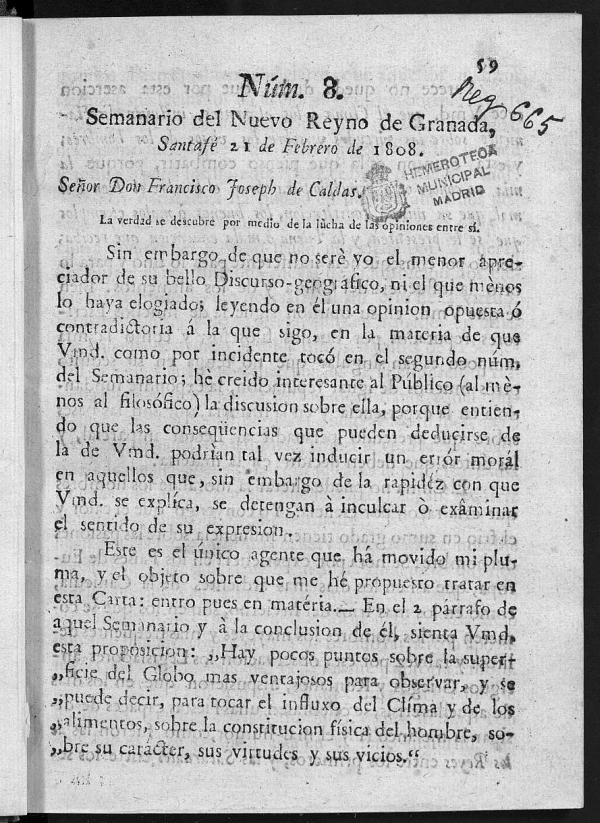 59
Reg 665
Núm. 8.
Semanario del Nuevo Reyno de Granada,
Santafé 21 de Febrero de 1808.
HEMEROTECA
MUNICIPAL
MADRID
Señor Don Francisco Joseph de Caldas.
La verdad se descubre por medio de la lucha de las opiniones entre sí.
Sin embargo de que no serè yo el menor apre-
ciador de su bello Discurso-geografico, ni el que mènos
lo haya elogiado; leyendo en él una opinion opuesta ó
contradictoria á la que sigo, en la materia de que
Vmd. como por incidente tocó en el segundo núm.
del Semanario; hè creido interesante al Público (al mè-
nos al filosófico) la discusion sobre ella, porque entien-
do que las conseqüencias que pueden deducirse de
la de Vmd. podrìan tal vez inducir un errór morál
en aquellos que, sin embargo de la rapidéz con que
Vmd. se explíca, se detengan à inculcar ò exâminar
el sentido de su expresion.
Este es el único agente que há movido mi plu-
ma, y el objeto sobre que me hé propuesto tratar en
esta Carta: entro pues en matéria.— En el 2 párrafo de
aquel Semanario y à la conclusion de él, sienta Vmd.
esta proposicion: „Hay pocos puntos sobre la super-
„ficie del Globo mas ventajosos para observar, y se
„puede decir, para tocar el influxo del Clíma y de los
„alimentos, sobre la constitucion física del hombre, so-
„bre su carácter, sus virtudes y sus vicios.“